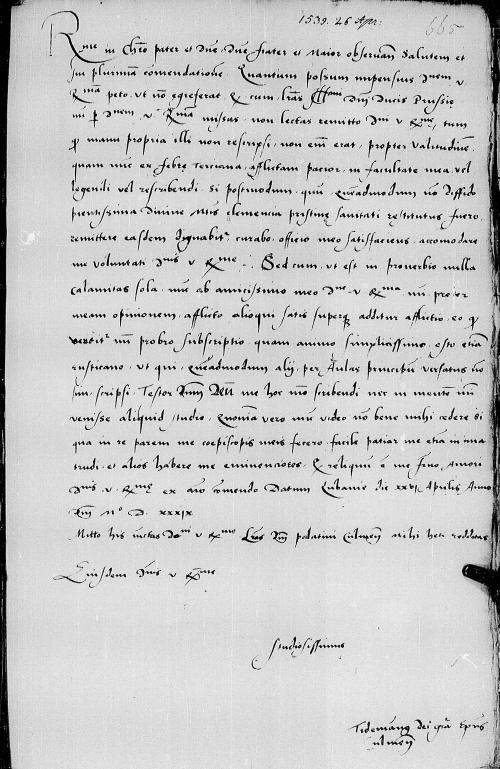 1539. 26 Apr:
665
Rme in Chro pater et Dne, Dne frater et Maior observan. Salutem et
sui plurimam comendatione. Quantum possum impensius Dnem v
Rma peto, ut no egreferat, q. cum lras Illmi Dni Ducis Prussie
mi p Dnem v Rma missas, non lectas remitto Dni v Rme, tum
q manu propria illi non rescripsi, non em erat, propter valitudine,
quam nuc ex febre terciana afflictam pacior, in facultate mea vel
legendi vel rescribendi. Si postmodum, quu, quemadmodum no diffido
pientissima divine mtis clemencia pristine sanitati restitutus fuero,
remittere easdem dignabitr, curabo, officio meo satisfaciens, accomodare
me voluntati Dnis v Rme. Sed cum, ut est in proverbio nulla
calamitas sola, nuc ab amicissimo meo Dne v Rma, mi preter
meam opinionem, afflicto alioqui satis superq additur afflictio, eo q
vertitr mi probro subscriptio, quam animo simplicissimo, esto etia
rusticano, ut qui, quemadmodum alij, per Aulas principum versatus no
sim, scripsi. Testor Dnm Deu me hoc mo scribendi nec in mente mi
venisse aliquid, studio, Quonia vero nuc video no bene mihi cedere si
qua in re parem me coepiscopis meis fecero, facile patiar me etia in ima
trudi, et alios habere me eminenciores. Q reliquu e me frno, amori
Dnis v Rme ex aio comendo Datum Lubavie die xxvi Aprilis Anno
Dni Mo D. xxxix
Mitto his iunctas Dni v Rme lras Dni palatini Culmen mihi heri redditas
Eiusdem Dnis v Rme
studiosissimus
Tidemanus dei gra Epus
Culmen